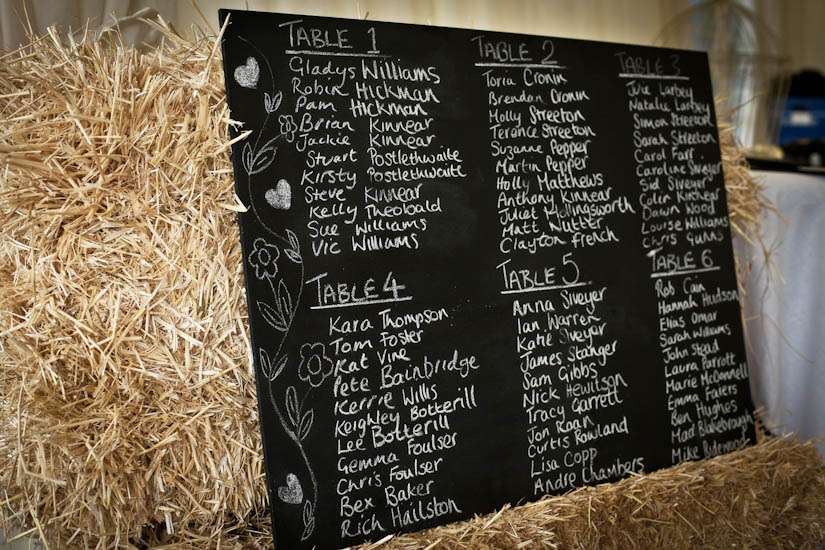 TABLE 1
Gladys Williams
Robin Hickman
Pam Hickman
Brian Kinnear
Jackie Kinnear
Stuart Postlethwaite
Kirsty Postlethwaite
Steve Kinnear
Kelly Theobald
Sue Williams
Vic Williams
TABLE 2
Toria Cronin
Brendan Cronin
Holly Streeton
Terence Streeton
Suzanne Pepper
Martin Pepper
Holly Matthews
Anthony Kinnear
Juliet Hollingsworth
Matt Nutter
Clayton French
TABLE 3
Julie Larbey
Natalie Larbey
Simon Streeton
Sarah Streeton
Carol Farr
Caroline Siveyer
Sid Siveyer
Colin Kirchner
Dawn Wood
Louise Williams
Chris Gunns
TABLE 4
Kara Thompson
Tom Foster
Kat Vine
Pete Bainbridge
Kerrie Willis
Keighley Botterill
Lee Botterill
Gemma Foulser
Chris Foulser
Bex Baker
Rich Hailston
TABLE 5
Anna Siveyer
Ian Warren
Katie Siveyer
James Stanger
Sam Gibbs
Nick Hewitson
Tracy Garrett
Jon Roan
Curtis Rowland
Lisa Copp
Andre Chambers
TABLE 6
Rob Cain
Hannah Hudson
Elias Omar
Sarah Williams
John Stead
Laura Parrott
Marie McDonnell
Emma Faiers
Ben Hughes
Blakebrough
Mike